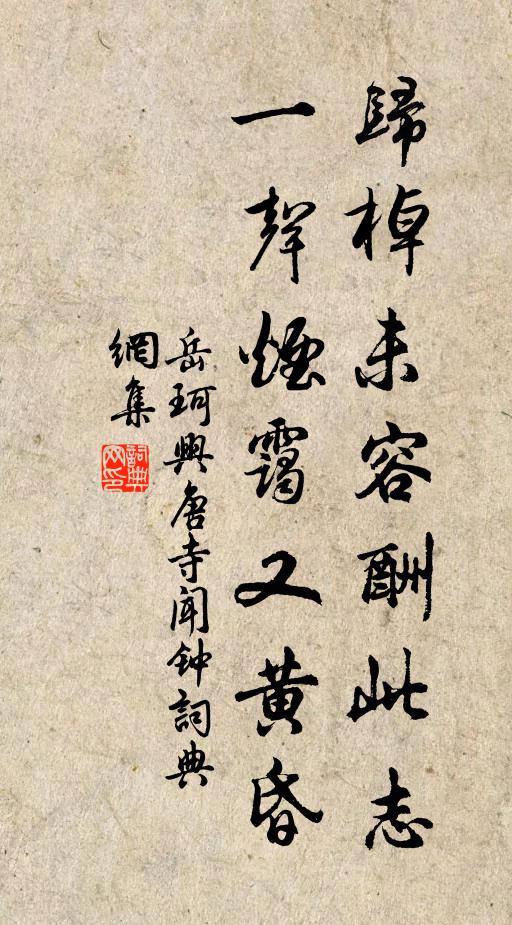 歸棹未容酬此志
一聲煙靄又黃昏
岳珂興唐寺聞鐘詞典
網集
詞典
网印